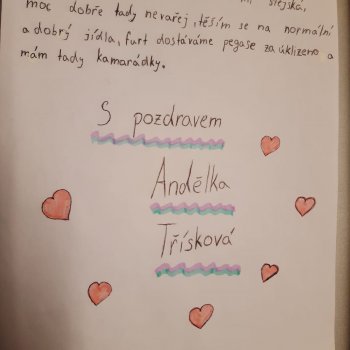 stejská,
moc dobře tady nevařej, těším se na normální
a dobrý jídla, furt dostáváme pegase za úklizeno a
mám tady kamarádky.
S pozdravem
Andělka
Třísková